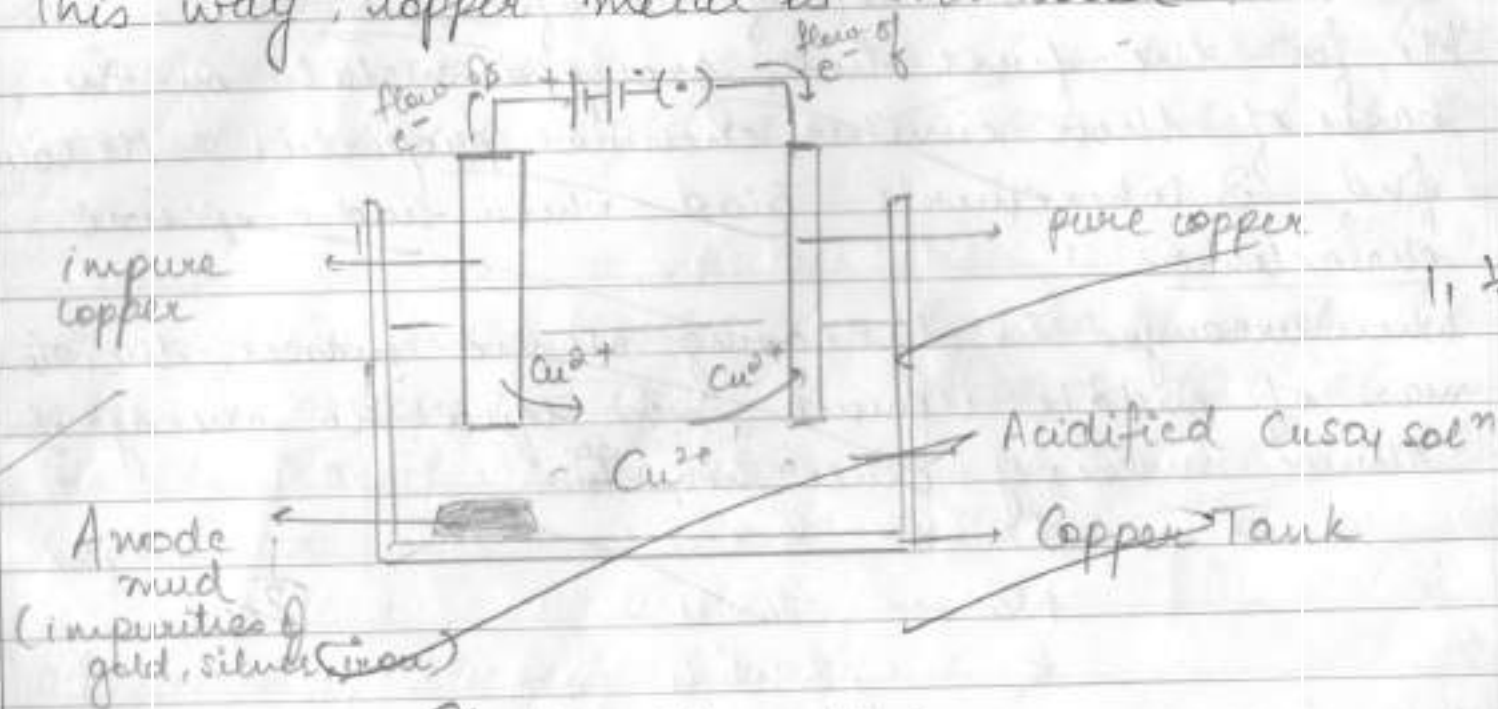 This way, copper metal is
flow of
e⁻
flow of
e⁻
+
-
impure
copper
pure copper
Cu²⁺
Cu²⁺
Cu²⁺
Acidified CuSO₄ solⁿ
Copper Tank
Anode
mud
(impurities of
gold, silver (iron)